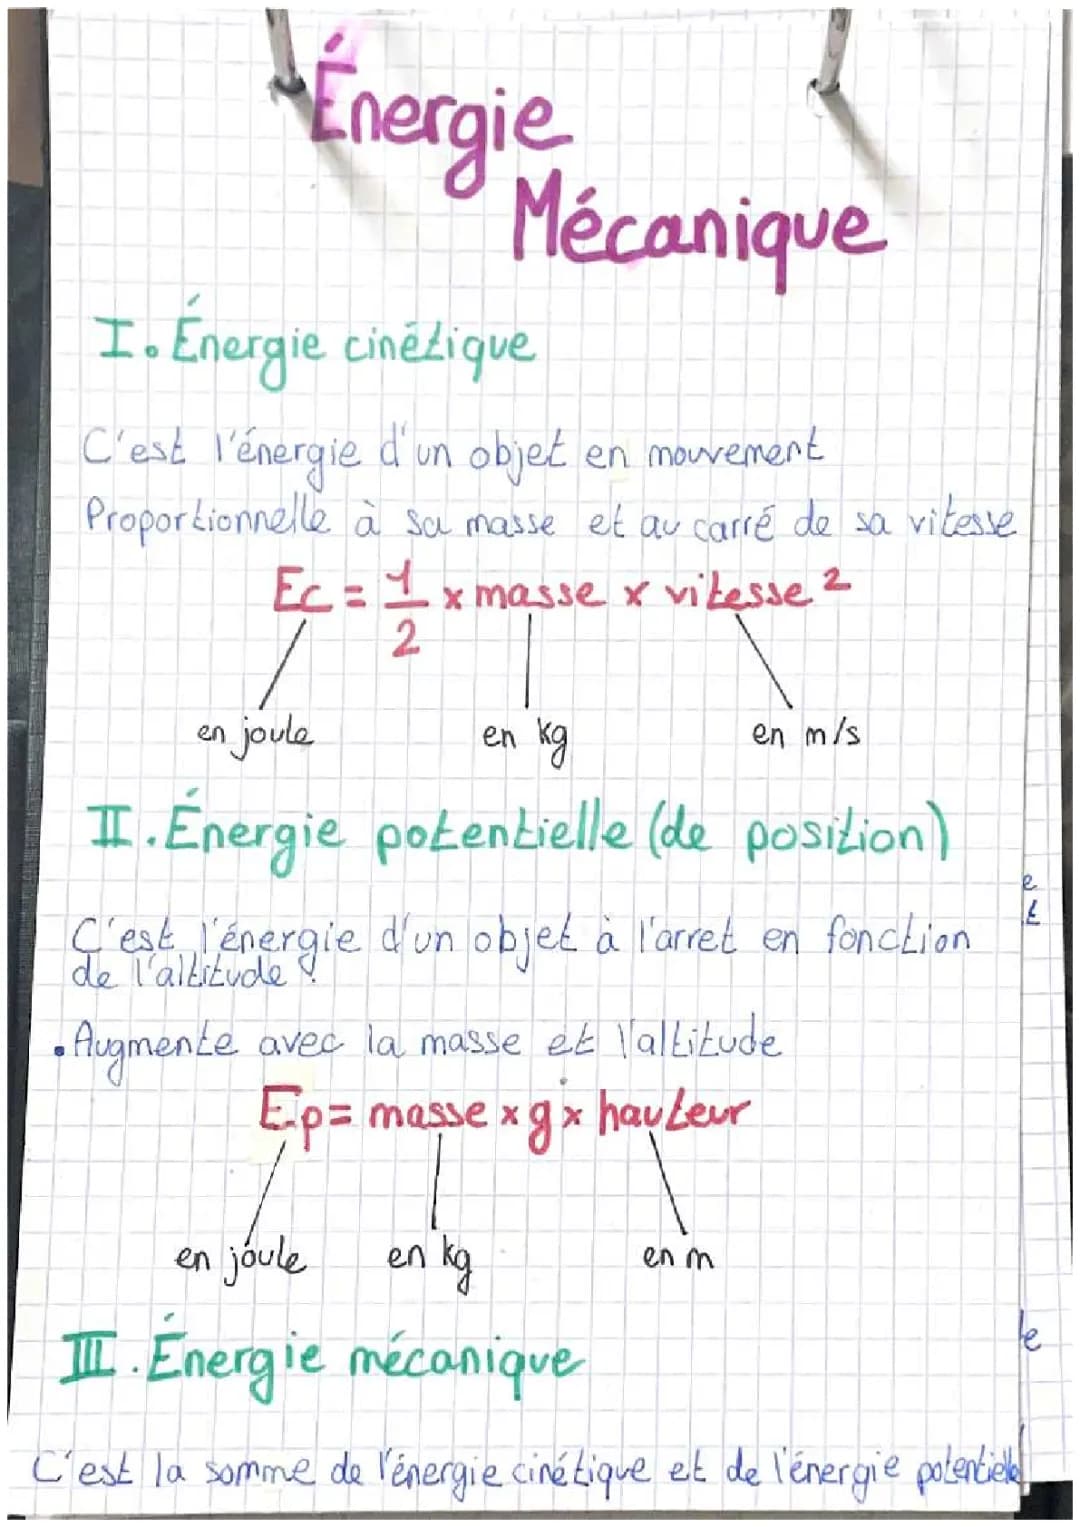 Énergie
Mécanique
I. Énergie cinétique
C'est l'énergie d'un objet en mouvement
Proportionnelle à sa masse et au carré de sa vitesse
Ec = 1/2 x masse x vitesse²
en joule en kg en m/s
II. Énergie potentielle (de position)
e
t
C'est l'énergie d'un objet à l'arret en fonction
de l'altitude !
• Augmente avec la masse et l'altitude
Ep = masse x g x hauteur
en joule en kg en m
le
III. Énergie mécanique
C'est la somme de l'énergie cinétique et de l'énergie potentielle